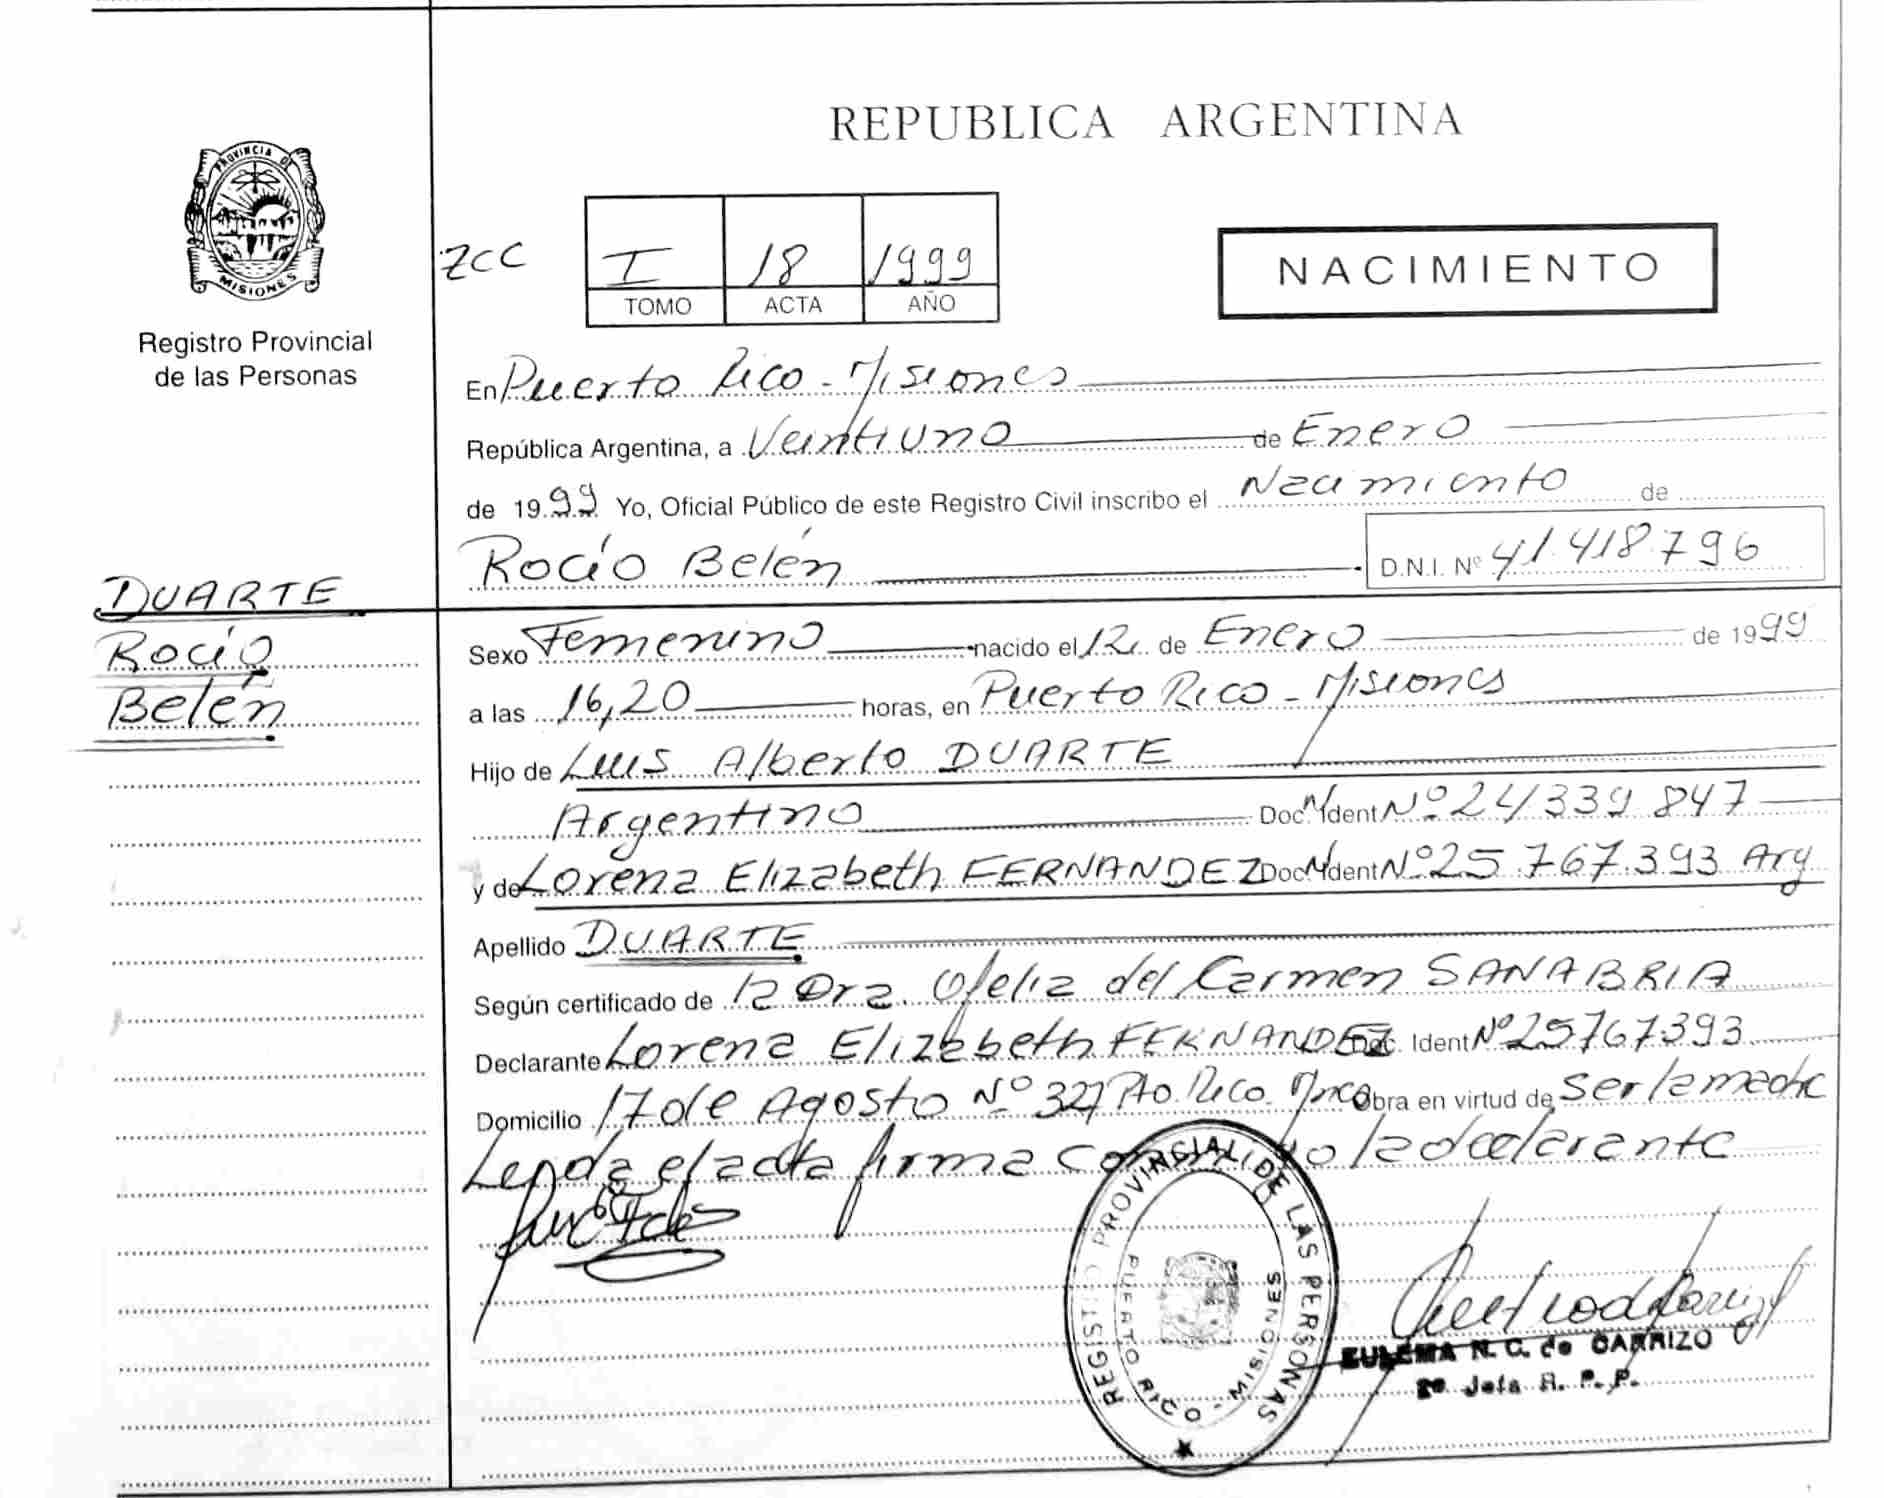 REPUBLICA ARGENTINA
PROVINCIA DE
MISIONES
Registro Provincial
de las Personas
ZCC
I 18 1999
TOMO ACTA AÑO
NACIMIENTO
En Puerto Rico - Misiones
República Argentina, a Veintiuno de Enero
de 1999 Yo, Oficial Público de este Registro Civil inscribo el Nacimiento de
Rocío Belén D.N.I. Nº 41.418.796
DUARTE
Rocío
Belén
Sexo Femenino nacido el 12 de Enero de 1999
a las 16,20 horas, en Puerto Rico - Misiones
Hijo de Luis Alberto DUARTE
Argentino Doc. Ident Nº 24 339 847
y de Lorena Elizabeth FERNANDEZ Doc. Ident Nº 25 767.393 Arg
Apellido DUARTE
Según certificado de la Dra. Ofelia del Carmen SANABRIA
Declarante Lorena Elizabeth FERNANDEZ Doc. Ident Nº 25767393
Domicilio 17 de Agosto Nº 327 Pto. Rico Obra en virtud de Ser la madre
Leida el acta firma conmigo la declarante
REGISTRO PROVINCIAL DE LAS PERSONAS
PUERTO RICO - MISIONES
EULEMA N. C. de CARRIZO
2º Jefa R. P. P.